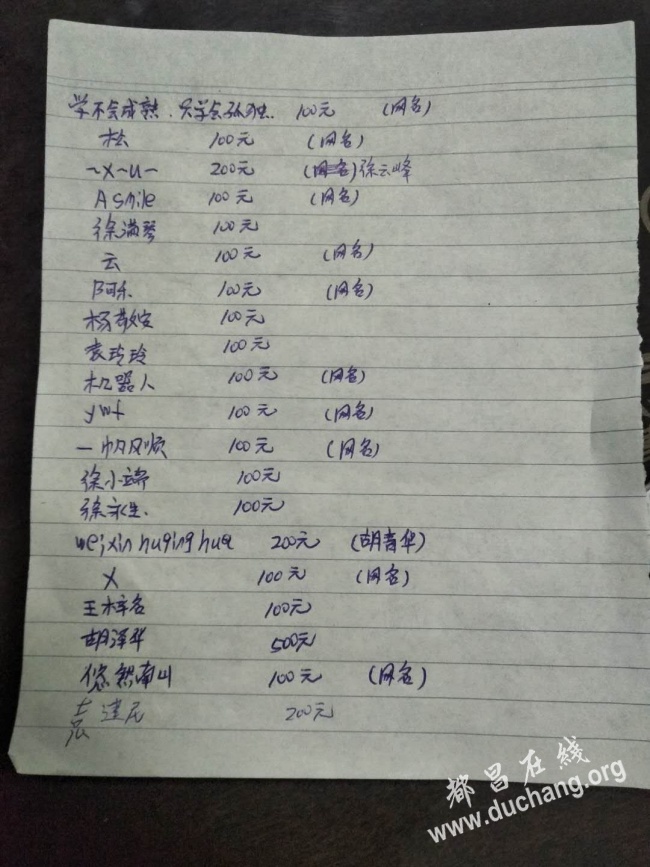 学不会成熟.只学会孤独. 100元 (网名)
松 100元 (网名)
~X~U~ 200元 (网名)徐云峰
A Smile 100元 (网名)
徐满琴 100元
云 100元 (网名)
阿乐 100元 (网名)
杨敬安 100元
袁玲玲 100元
机器人 100元 (网名)
ywf 100元 (网名)
一帆风顺 100元 (网名)
徐小端 100元
徐永生. 100元
weixin huqinghua 200元 (胡青华)
X 100元 (网名)
王梓名 100元
胡泽华 500元
悠然南山 100元 (网名)
袁达尼 200元
都昌在线
www.duchang.org